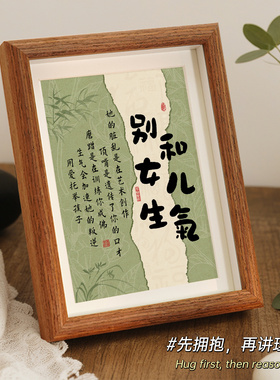 别和
女儿
生氣
她的脏乱是在艺术创作
顶嘴是遗传了你的口才
磨蹭是在训练你成佛
生气会加速她的叛逆
用爱托举孩子
#先拥抱，再讲
Hug first, then reaso